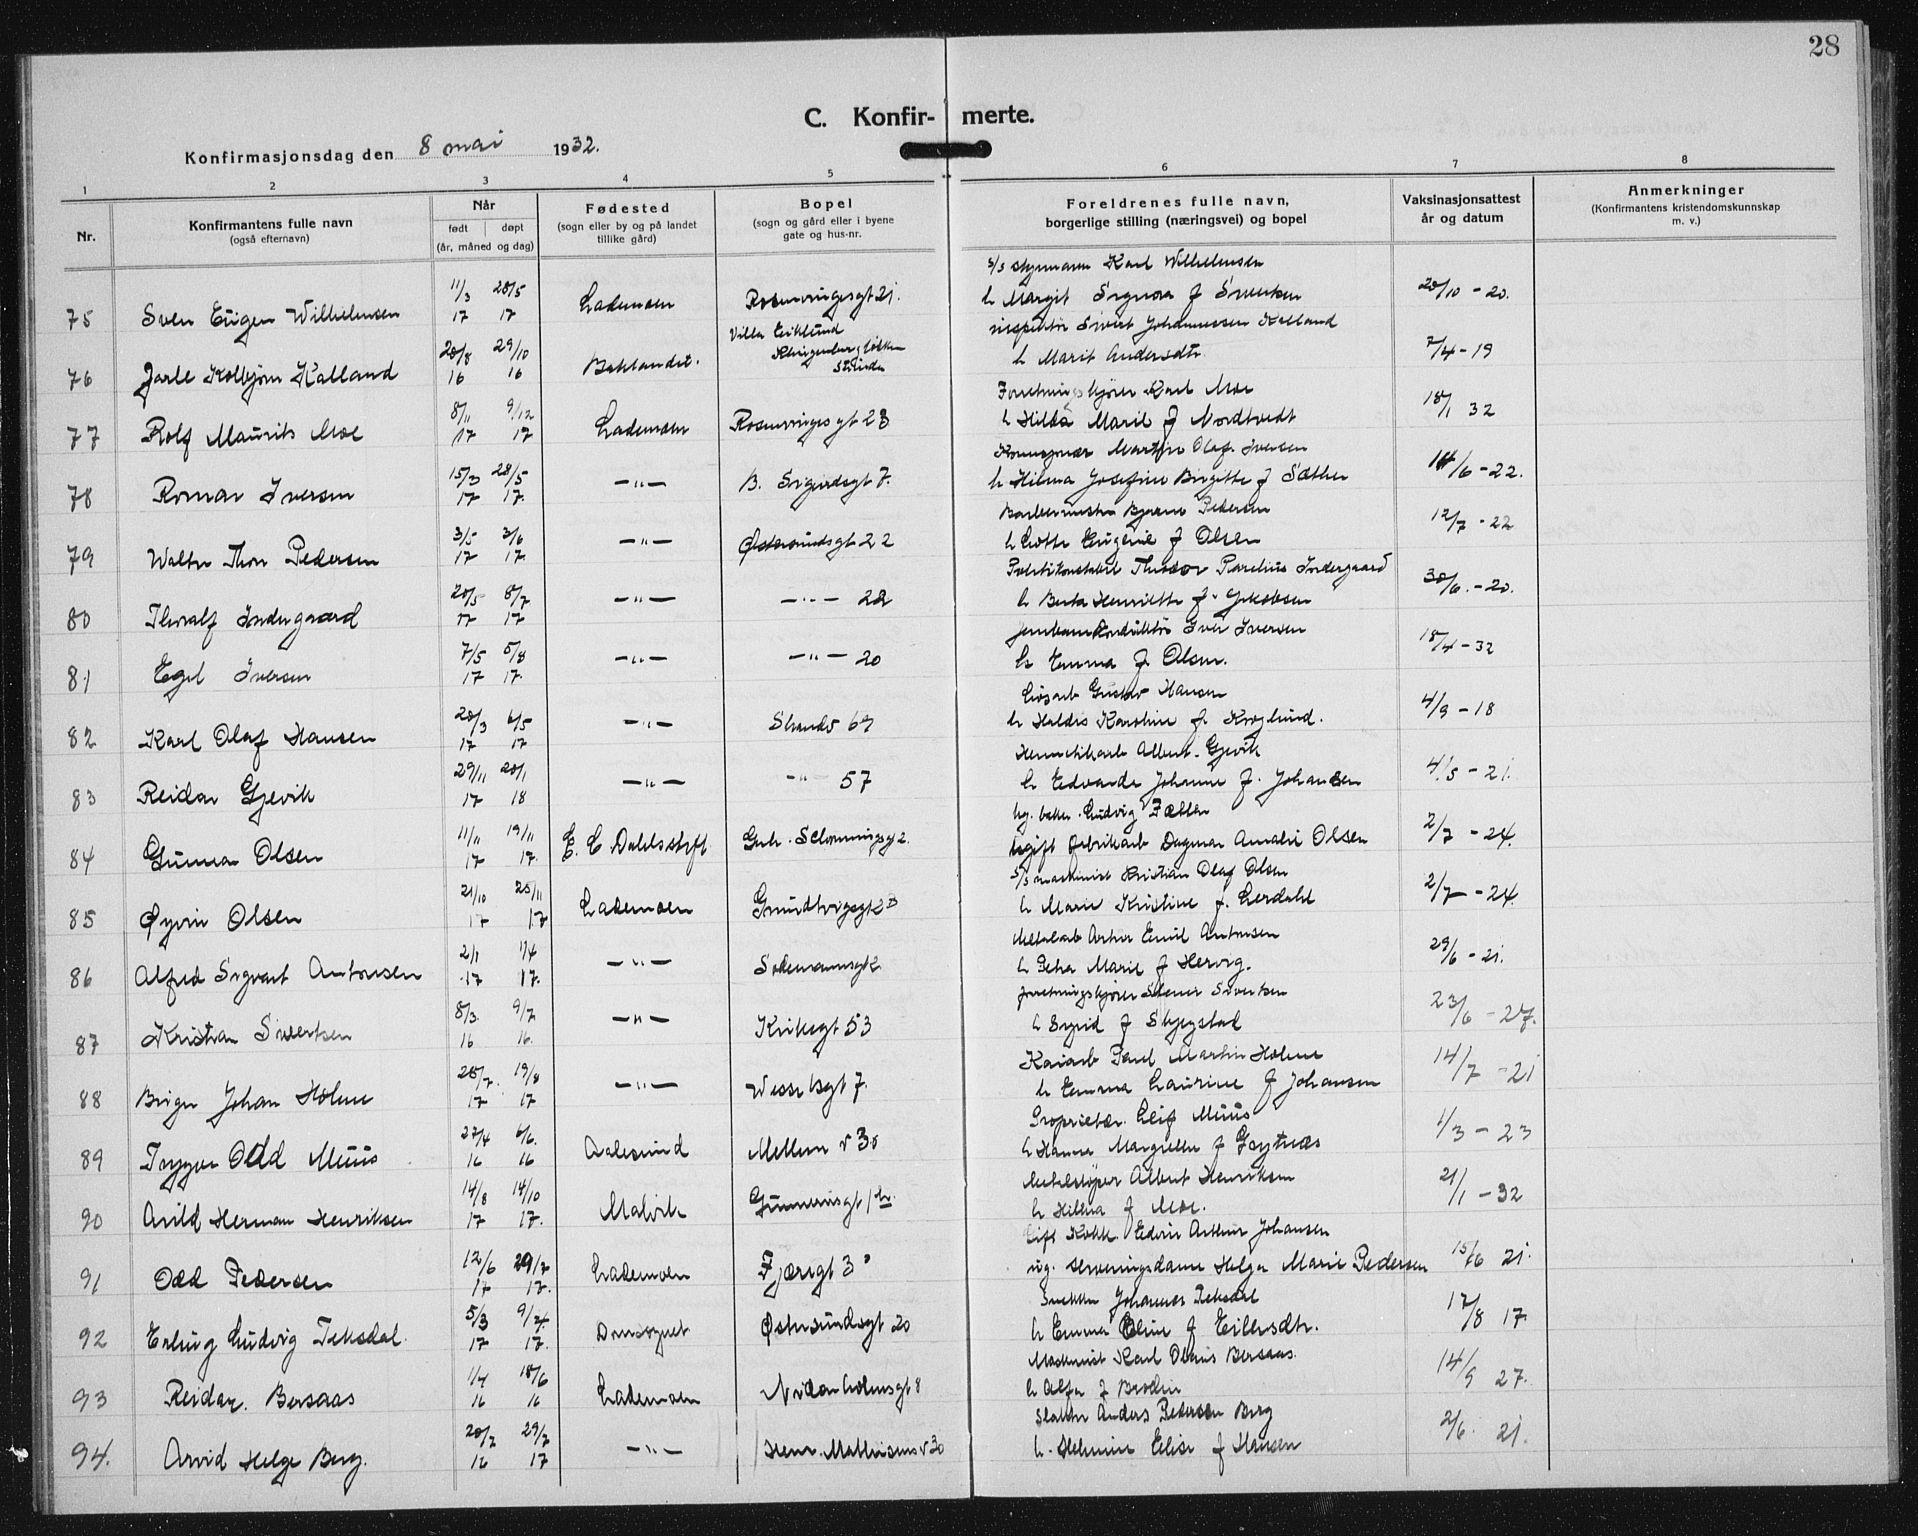 28
C. Konfir- merte.
Konfirmasjonsdag den 8 mai 1932.
1 2 3 4 5 6 7 8
Nr.
Konfirmantens fulle navn
(også efternavn)
Når
født døpt
(år, måned og dag)
Fødested
(sogn eller by og på landet
tillike gård)
Bopel
(sogn og gård eller i byene
gate og hus-nr.
Foreldrenes fulle navn,
borgerlige stilling (næringsvei) og bopel
Vaksinasjonsattest
år og datum
Anmerkninger
(Konfirmantens kristendomskunnskap
m. v.)
75 Sven Eugen Wilhelmsen 11/3 17 28/5 17 Lademoen Rosenvingesgt 21. s/s styrmann Karl Wilhelmsen
h Margit Signora f Sivertsen 20/10 - 20.
76 Jarle Kolbjørn Kalland 20/8 16 29/10 16 Baklandet. Villa Eiklund
Strinda
inspektør Sivert Johannessen Kalland
h Marit Andersdtr. 7/4 - 19
77 Rolf Maurits Moe 8/11 17 9/12 17 Lademoen Rosenvingesgt 28 Forretningskjører Karl Moe
h Hilda Marie f Nordtvedt 18/1 32
78 Romar Iversen 15/3 17 28/5 17 — " — B. Sigurdsgt 7. Martin Olaf Iversen
h Hilma Josefine Birgitte f Sæther 14/6 - 22.
79 Walter Thor Pedersen 3/5 17 3/6 17 — " — Østersundsgt 22 Barbermester Bjarne Pedersen
h Lotte Eugenie f Olsen 12/7 - 22
80 Thoralf Indergaard 20/5 17 8/7 17 — " — — " — 22 Politikonstabel Theodor Parelius Indergaard
h Berta Henriette f. Jakobsen 30/6. - 20.
81 Egil Iversen 7/5 17 5/8 17 — " — — " — 20 Jernbanekonduktør Iver Iversen
h Emma f. Olsen. 18/4 - 32
82 Karl Olaf Hansen 20/3 17 6/5 17 — " — Strandv 69 Løsarb Gustav Hansen
h Haldis Karoline f. Kroglund. 4/9 - 18
83 Reidar Gjevik 29/11 17 20/1 18 — " — — " — 57 Hermetikarb Albert Gjevik
h Edvarda Johanne f. Johansen 4/5 - 21.
84 Gunnar Olsen 11/11 17 19/11 17. E. C Dahlsstift Gerh. Schønningsgt 2. ug. baker Ludvig Fætten
ugift fabrikarb Dagmar Amalie Olsen 2/7 - 24.
85 Øyvin Olsen 21/10 17 25/11 17 Lademoen Grundtvigsgt 23 s/s maskinist Kristian Olaf Olsen
h Marie Kristine f. Lerdahl 2/7 - 24.
86 Alfred Sigvart Antonsen 2/1 17 1/4 17. — " — Sodemannsgt 2 Metalarb Arthur Emil Antonsen
h Petra Marie f Hervig. 29/6 - 21.
87 Kristian Sivertsen 8/3. 16 9/7 16. — " — Kirkegt 53 forretningskjører Stener Sivertsen
h Sigrid f Skjegstad 23/6 - 27.
88 Birger Johan Holme 28/7. 17 19/8 17 — " — Wesselsgt 7. Kaiarb Paul Martin Holme
h Emma Laurine f Johansen 14/7 - 21
89 Trygve Odd Muus 27/4 16 6/6. 16 Aalesund Mellem v 30 Proprietær. Leif Muus
h Hanna Margrethe f Grytnæs 1/3 - 23
90 Arild Herman Henriksen 14/8 17 14/10 17. Malvik Gunnerusgt 1 b. Metalstøper Albert Henriksen
h Hilma f Moe. 21/1 - 32
91 Odd Pedersen 12/6 17 29/7 17. Lademoen Fjæregt 3 Gift Kokk. Edvin Arthur Johansen
ug. serveringsdame Helga Marie Pedersen 15/6 21.
92 Erling Ludvig Teksdal. 5/3 17 9/4. 17. Domsognet Østersundsgt 20 Snekker Johannes Teksdal
h Emma Eline f Eilersdtr. 17/8 17.
93 Reidar. Bersaas 1/4 16 18/6 16 Lademoen Nidarholmsgt 8 Maskinist Karl Olaus Bersaas.
h Alfa f Brodin 14/9 27.
94. Arvid Helge Berg. 20/7 16 29/7 17 — " — Henr. Mathisens v 30 Slakter Anders Pedersen Berg
h. Helmine Elise f Hansen 2/6. 21.